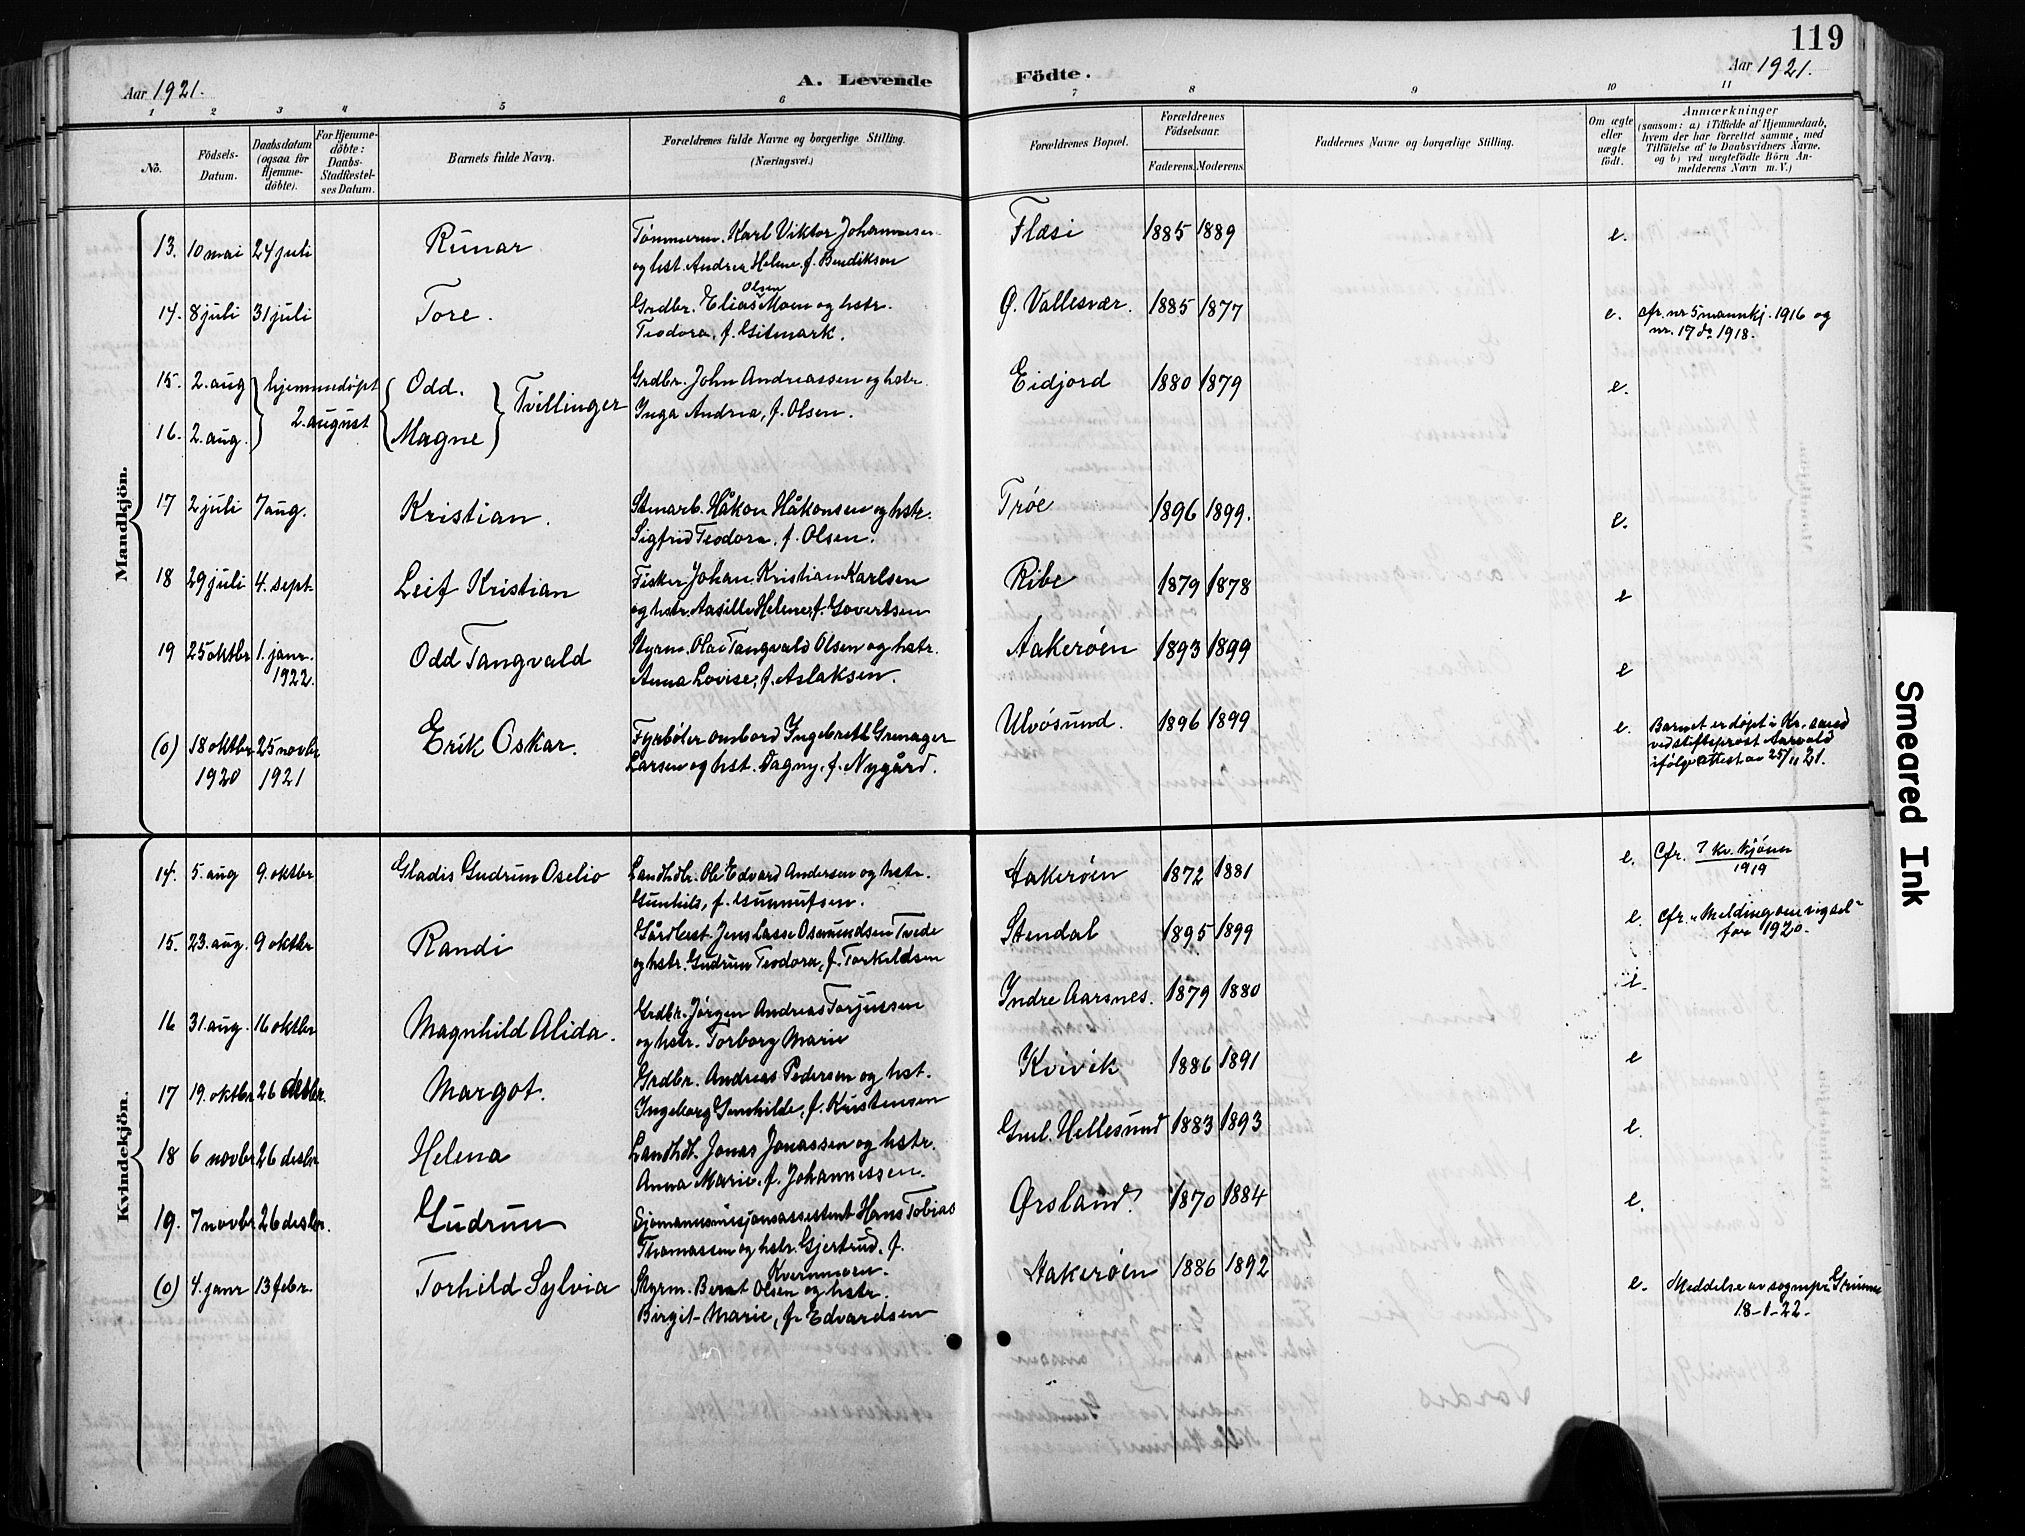 119
Aar 1921.
A. Levende Födte.
Aar 1921.
1 2 3 4 5 6 7 8 9 10 11
No.
Födsels-Datum.
Daabsdatum (ogsaa for Hjemme-döbte).
For Hjemme-döbte: Daabs-Stadfæstel-ses Datum.
Barnets fulde Navn.
Forældrenes fulde Navne og borgerlige Stilling. (Næringsvei.)
Forældrenes Bopæl.
Forældrenes Födselsaar.
Faderens. Moderens.
Faddernes Navne og borgerlige Stilling.
Om ægte eller uægte födt.
Anmærkninger
(saasom: a) i Tilfælde af Hjemmedaab, hvem der har forrettet samme, med Tilföielse af to Daabsvidners Navne, og b) ved uægtefödte Börn Anmelderens Navn m.V.)
Mandkjön.
13. 10 mai 24 juli Runar. Tømmerm. Karl Viktor Johannesen Flæsi 1885 1889 e.
og hst. Andrea Helene f. Bendiksen
14. 8 juli 31 juli Tore. Grdbr. Elias Olsen Moen og hstr. Ø. Vallesvær. 1885 1877 e. cfr. nr 5 mannkj. 1916 og
Teodora, f. Gitmark. nr. 17 do 1918.
15. 2. aug hjemmedøpt Odd. Tvillinger Grdbr. John Andreassen og hstr. Eidjord 1880 1879 e.
16. 2. aug. 2. august Magne Inga Andrea, f. Olsen.
17 2 juli 7 aug. Kristian. Stenarb. Håkon Håkonsen og hstr. Trøe 1896 1899. e.
Sigfrid Teodora, f. Olsen.
18 29 juli 4. sept. Leif Kristian Fisker Johan Kristian Karlsen Ribe 1879 1878 e
og hstr. Aasille Helene, f. Govertsen
19 25 oktbr 1. janr. 1922. Odd Tangvald Styrm. Olai Tangvald Olsen og hstr. Aakerøen 1893 1899 e
Anna Lovise, f. Aslaksen.
(0) 18 oktbr 1920 25 novbr 1921 Erik Oskar. Fyrbøter ombord Ingebrett Grenager Ulvøsund. 1896 1899 e. Barnet er døpt i Kr.sand
Larsen og hst. Dagny, f. Nygård. ved stiftsprost Aarvold
ifølge attest av 25/11 21.
Kvindekjön.
14. 5. aug 9. oktbr Gladis Gudrun Oselio Landhdlr. Ole Edvard Andersen og hstr. Aakerøen 1872 1881 e. Cfr. 7 kv. kjønn 1919
Gunhild, f. Gunnufsen.
15. 23. aug. 9 oktbr Randi Gårdbest. Jens Lasse Osmundsen Tvede Stendal 1895 1899 e. cfr. "Melding om vigsel" for 1920.
og hstr. Gudrun Teodora, f. Torkildsen
16 31. aug. 16 oktbr Magnhild Alida. Grdbr. Jørgen Andreas Torjussen Indre Aarsnes. 1879 1880 e.
og hstr. Torborg Marie
17 19. oktbr 26 desbr. Margot. Grdbr. Andreas Pedersen og hst. Kvivik 1886 1891 e
Ingeborg Gunhilde, f. Kristensen
18 6 novbr 26 desbr Helena Landhdl. Jonas Jonassen og hstr. Gml. Hellesund 1883 1893 e.
Anna Marie, f. Johannessen.
19. 7 novbr 26 desbr. Gudrun Sjømannsmisjonsassistent Hans Tobias Ørsland. 1870 1884 e.
Thomassen og hstr. Gjertrud, f. Kvernmoen.
(0) 4. janr 13 febr. Torhild Sylvia Styrm. Bernt Olsen og hstr. Aakerøen 1886 1892 e. Meddelse av sognepr. Grimme
Birgit-Marie, f. Edvardsen 18-1-22.
Smeared Ink